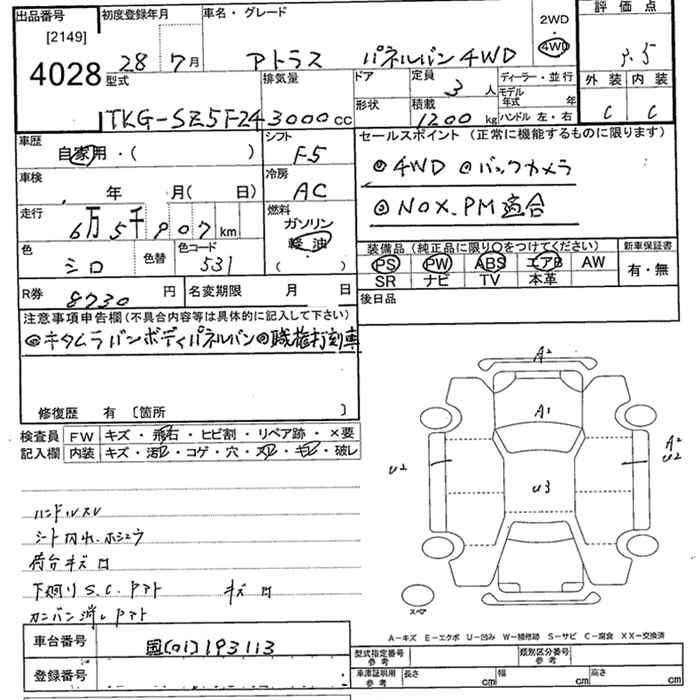 出品番号 初度登録年月 車名・グレード 2WD 評価点
[2149] 28年7月 アトラス パネルバン 4WD 4WD 3.5
4028 型式 排気量 ドア 定員 3人 ディーラー・並行 外装 内装
モデル年式 年
TKG-SZ5F24 3000cc 形状 積載 1200kg ハンドル 左・右 C C
車歴 シフト セールスポイント (正常に機能するものに限ります)
自家用・( ) F-5
◎4WD ◎バックカメラ
車検 冷房
年 月( 日) AC
◎NOX.PM適合
走行 燃料
6万5千907km ガソリン
軽油
色 色替 色コード 装備品 (純正品に限り○をつけてください) 新車保証書
シロ 531 ( ) PS PW ABS エアB AW 有・無
SR ナビ TV 本革
R券 8730円 名変期限 月 日 後日品
注意事項申告欄(不具合内容等は具体的に記入して下さい)
◎キタムラバンボディパネルバン◎職権打刻車
修復歴 有 〔箇所 〕
検査員 FW キズ・飛石・ヒビ割・リペア跡・×要
記入欄 内装 キズ・汚レ・コゲ・穴・スレ・キレ・破レ
A2
A1
A2
U2
U2
U3
ハンドルスレ
シート内れ.ホシュウ
荷台キズ凹
下廻りS.C.アト キズ凹
カンバン消しアト
スペア
A-キズ E-エクボ U-凹み W-補修跡 S-サビ C-腐食 XX-交換済
車台番号 国[01]193113 型式指定番号 参考 類別区分番号 参考
登録番号 車庫証明用 参考 長さ cm 幅 cm 高さ cm